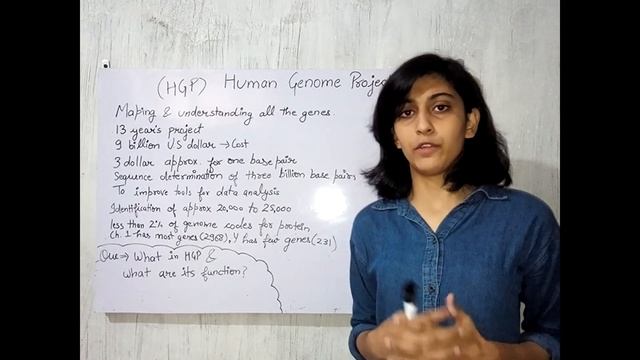 (HGP) Human Genome Projec
Maping & understanding all the genes.
13 year's project
9 billion US dollar → Cost
3 dollar approx. for one base pair
Sequence determination of three billion base pairs
To improve tools for data analysis
Identification of approx 20,000 to 25,000
less than 2% of genome codes for protein
Ch. 1-has most genes (2968), Y has few genes (231)
Que ⇒ What in HGP &
what are its function?